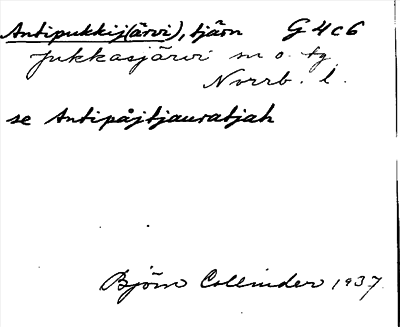 Antipukkij(ärvi), tjärn G4c6
Jukkasjärvi sn o. tg.
Norrb. l.
se Antipåjtjauratjah
Björn Collinder 1937.